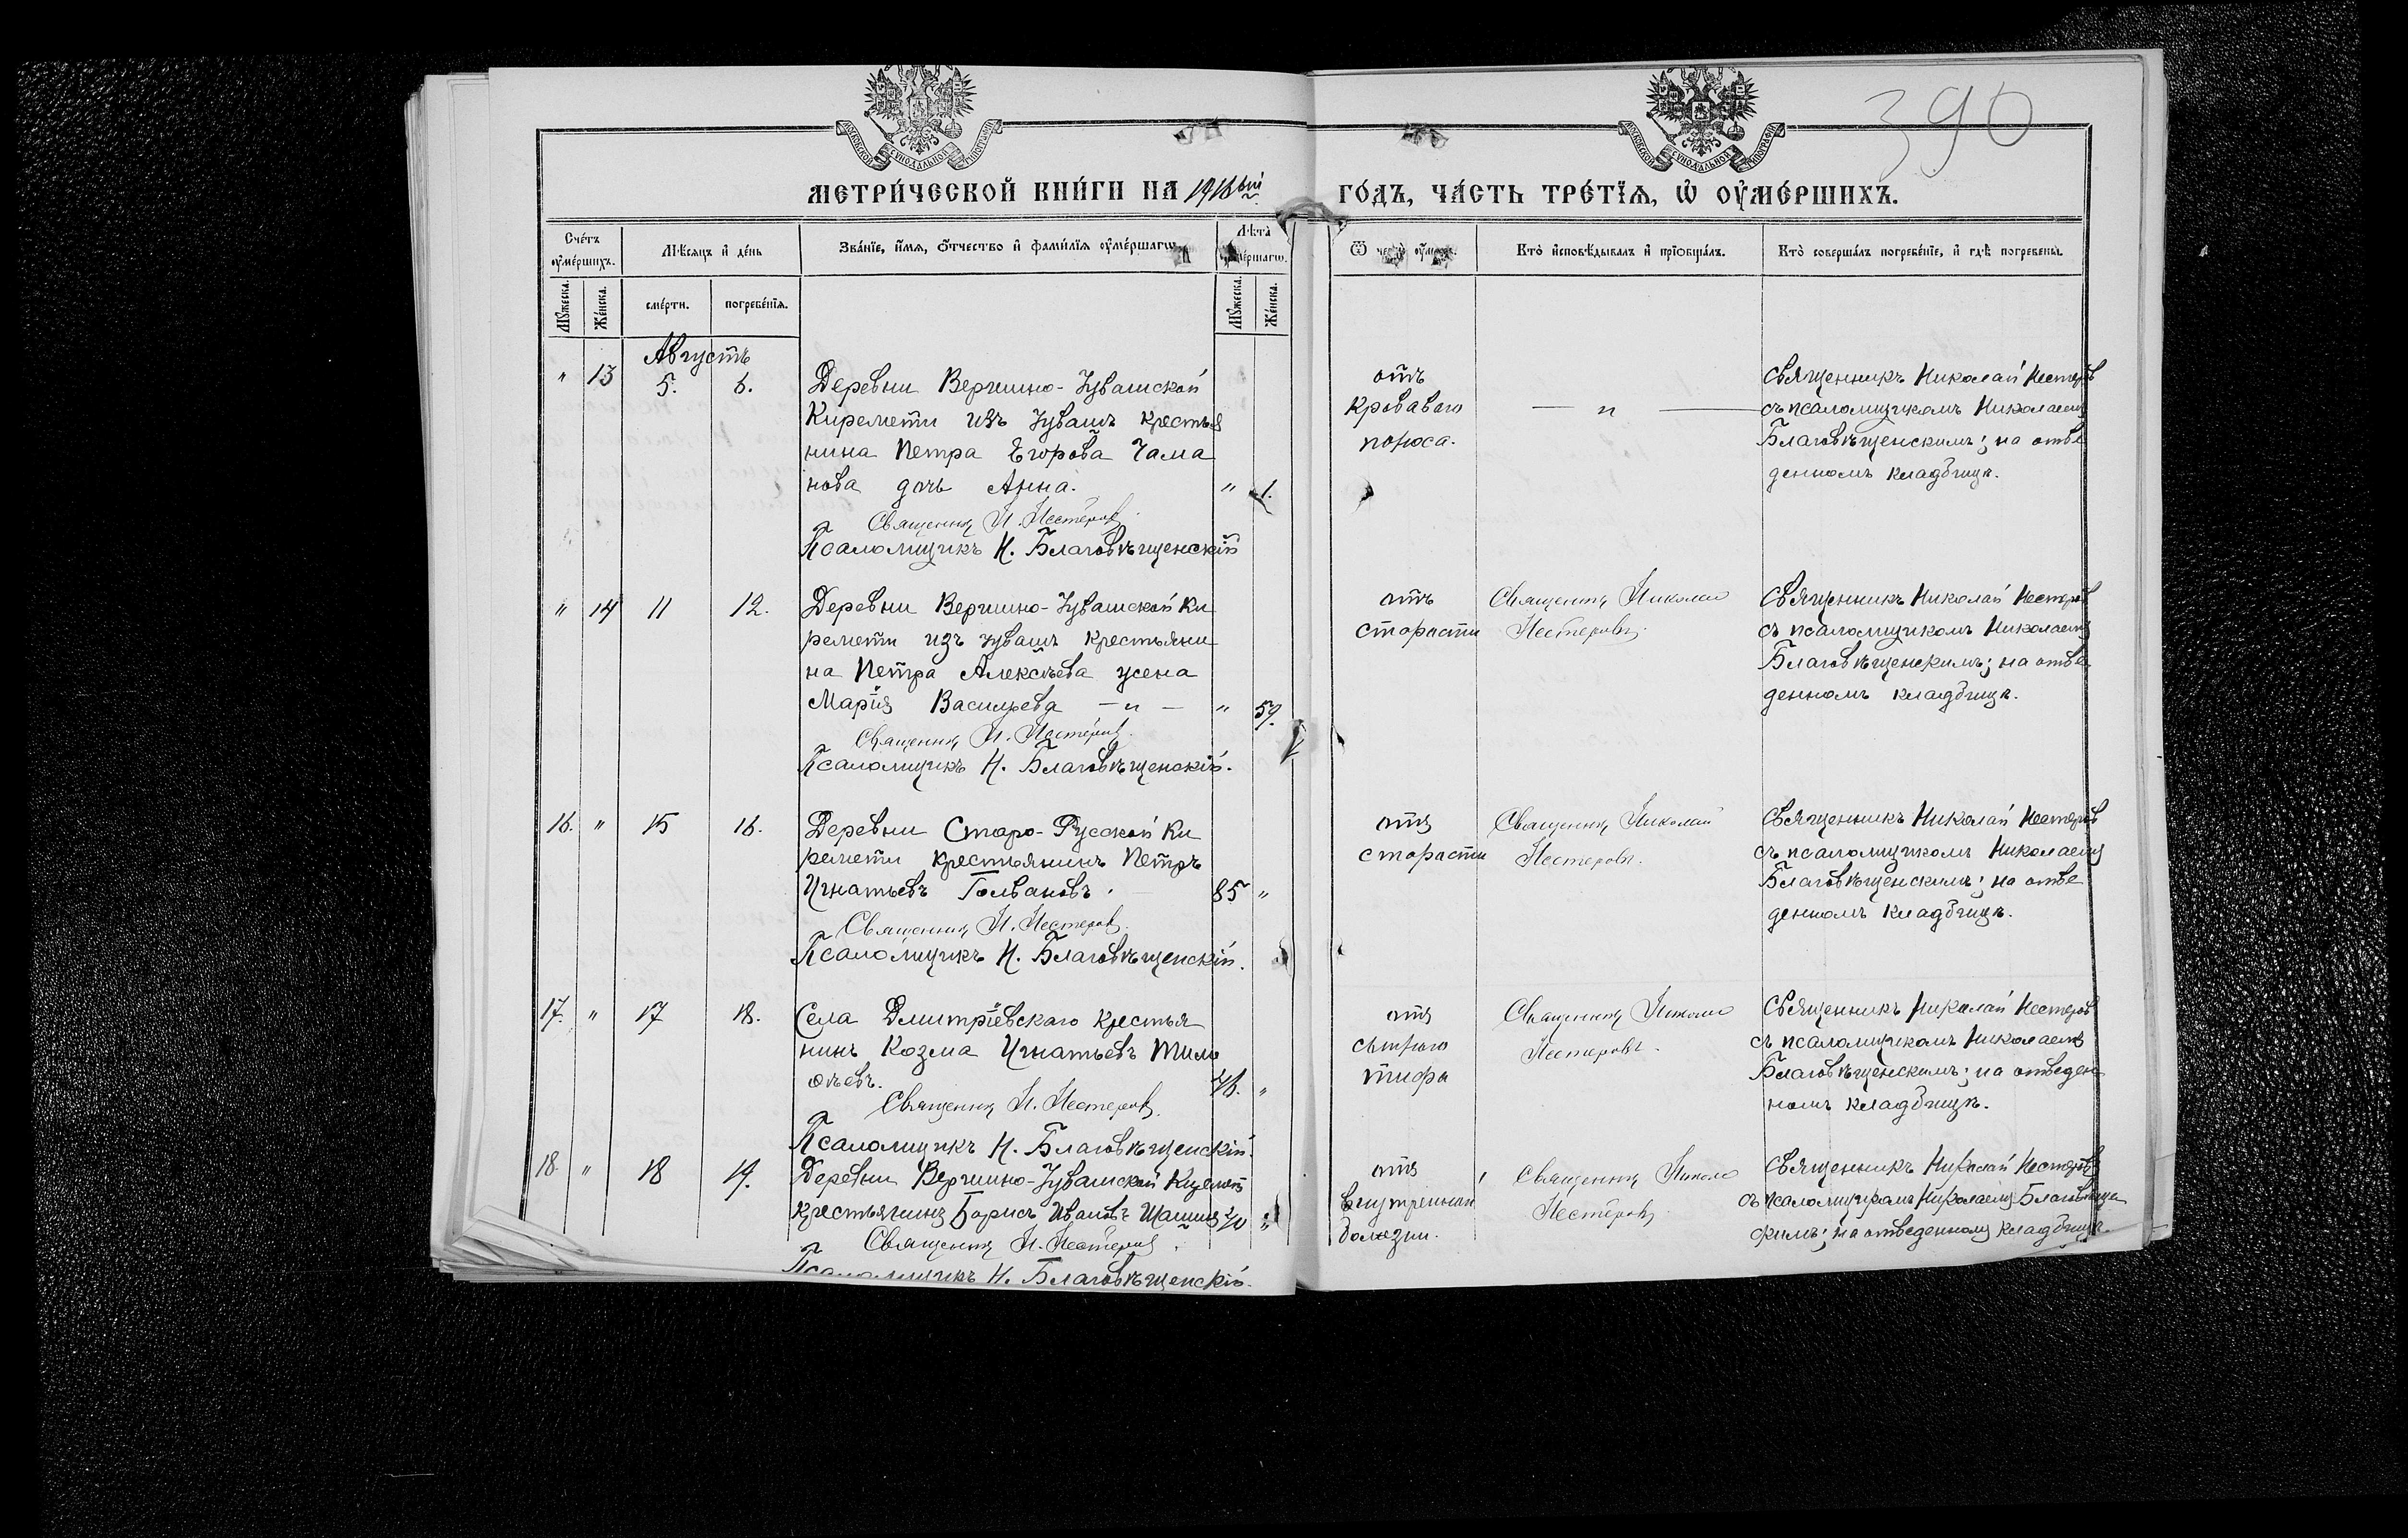 390
МОСКОВСКОЙ СѴНОДАЛЬНОЙ ТИПОГРАФІИ
МОСКОВСКОЙ СѴНОДАЛЬНОЙ ТИПОГРАФІИ
МЕТРИ́ЧЕСКОЙ КНИ́ГИ НА 1916ый ГО́ДЪ, ЧА́СТЬ ТРЕ́ТЇЯ, Ѡ ОУ҆МЕ́РШИХЪ.
Сче́тъ оу҆ме́ршихъ.
Мѣ́сяцъ и҆ де́нь
Зва́нїе, и҆́мя, ѻ҆́тчество и҆ фами́лїя оу҆ме́ршагѡ
Лѣ́та оу҆ме́ршагѡ.
Ѿ чегѡ̀ оу҆́мре.
Кто̀ и҆сповѣ́дывалъ и҆ прїѡбща́лъ.
Кто̀ соверша́лъ погребе́нїе, и҆ гдѣ̀ погребены̀.
Мꙋ́жеска.
Же́нска.
сме́рти.
погребе́нїя.
Мꙋ́жеска.
Же́нска.
Августъ
" 13 5. 6.
Деревни Вершино-Чувашской
Киремети изъ чувашъ крестья
нина Петра Егорова Чама
нова дочь Анна. " 1.
Священникъ Н. Нестеровъ.
Псаломщикъ Н. Благовѣщенскій
отъ
кроваваго
поноса.
— " —
Священникъ Николай Нестеровъ
съ псаломщикомъ Николаемъ
Благовѣщенскимъ; на отве
денномъ кладбищѣ.
" 14 11 12.
Деревни Вершино-Чувашской Ки
ремети изъ чувашъ крестьяни
на Петра Алексѣева жена
Марія Васильева — " — " 57.
Священникъ Н. Нестеровъ.
Псаломщикъ Н. Благовѣщенскій.
отъ
старости
Священникъ Николай
Нестеровъ.
Священникъ Николай Нестеровъ
съ псаломщикомъ Николаемъ
Благовѣщенскимъ; на отве
денномъ кладбищѣ.
16. " 15 16.
Деревни Старо-Русской Ки
ремети крестьянинъ Петръ
Игнатьевъ Голвановъ. 85 "
Священникъ Н. Нестеровъ.
Псаломщикъ Н. Благовѣщенскій.
отъ
старости
Священникъ Николай
Нестеровъ.
Священникъ Николай Нестеровъ
съ псаломщикомъ Николаемъ
Благовѣщенскимъ; на отве
денномъ кладбищѣ.
17. " 17 18.
Села Дмитріевскаго крестья
нинъ Козма Игнатьевъ Тимо
ѳѣевъ. "
Священникъ Н. Нестеровъ.
Псаломщикъ Н. Благовѣщенскій.
отъ
сыпного
тифа
Священникъ Николай
Нестеровъ.
Священникъ Николай Нестеровъ
съ псаломщикомъ Николаемъ
Благовѣщенскимъ; на отведен
номъ кладбищѣ.
18. " 18 19.
Деревни Вершино-Чувашской Киремети
крестьянинъ Борисъ Ивановъ "
Священникъ Н. Нестеровъ
Псаломщикъ Н. Благовѣщенскій.
отъ
внутренней
болѣзни.
Священникъ Николай
Нестеровъ.
Священникъ Николай Нестеровъ
съ псаломщикомъ Николаемъ Благовѣщен
скимъ; на отведенномъ кладбищѣ.